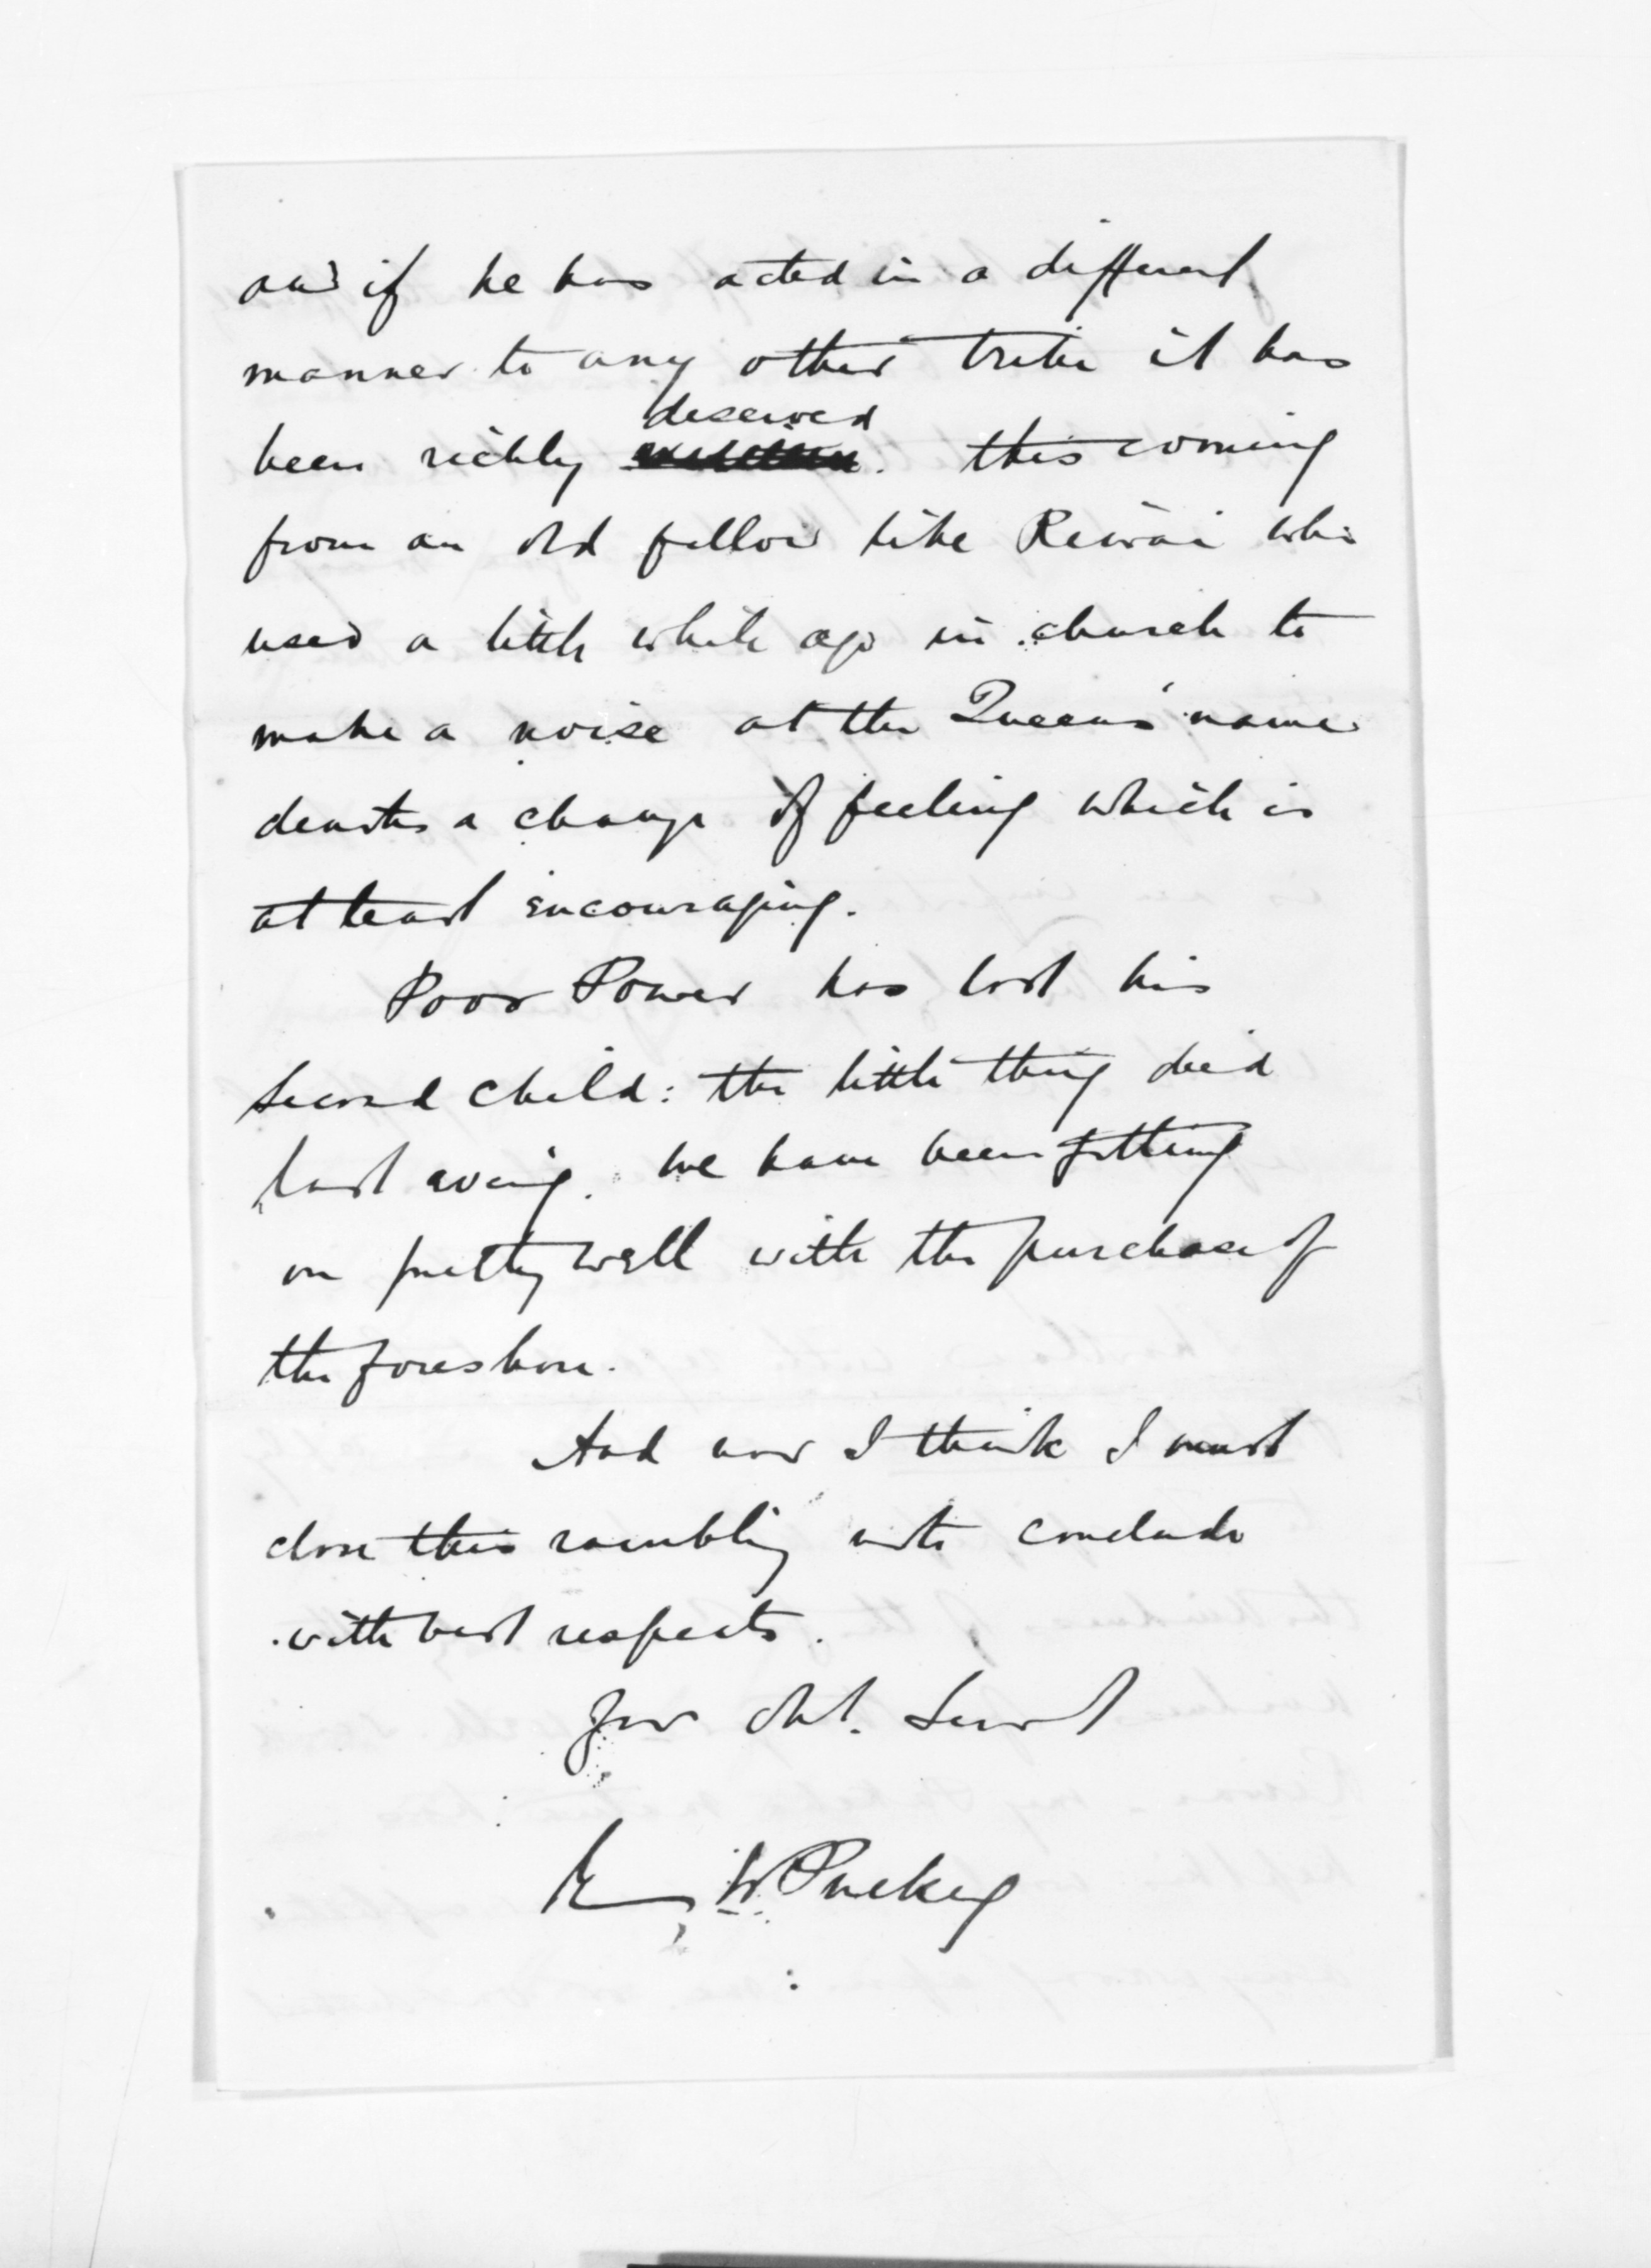 and if he has acted in a different
manner to any other tribe it has
been richly deserved. this coming
from an old fellow like Rewai who
used a little while ago in church to
make a noise at the Queens' name
denotes a change of feeling which is
at least encouraging.
Poor Power has lost his
second child: the little thing died
last eveing. We have been getting
on pretty well with the purchase of
the foreshore.
And now I think I must
close this rambling note conclude
with best respects.
Your Obt. Servt
E. W. Puckey